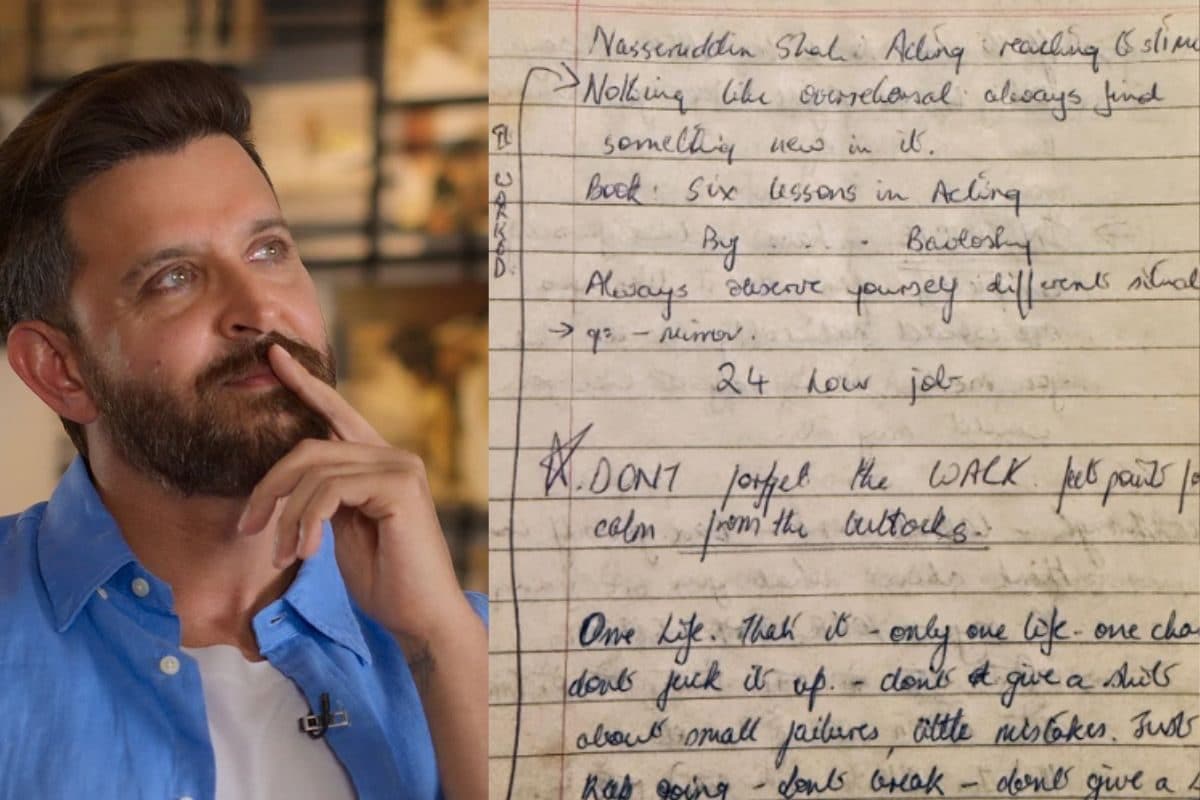 Nasseruddin Shah: Acting: reacting to stimu
Nothing like overrehersal. always find
something new in it.
Book: Six lessons in Acting
By .... Bavloshy
Always observe yourself differents situat
→ - mirror.
24 hour jobs
IT WORKED.
☆. DONT forget the WALK. feet points
calm from the buttocks.
One Life. Thats it - only one life - one cha
donts fuck it up. - donts give a shits
about small failures, little mistakes. Just
Keep going - donts break - donts give a